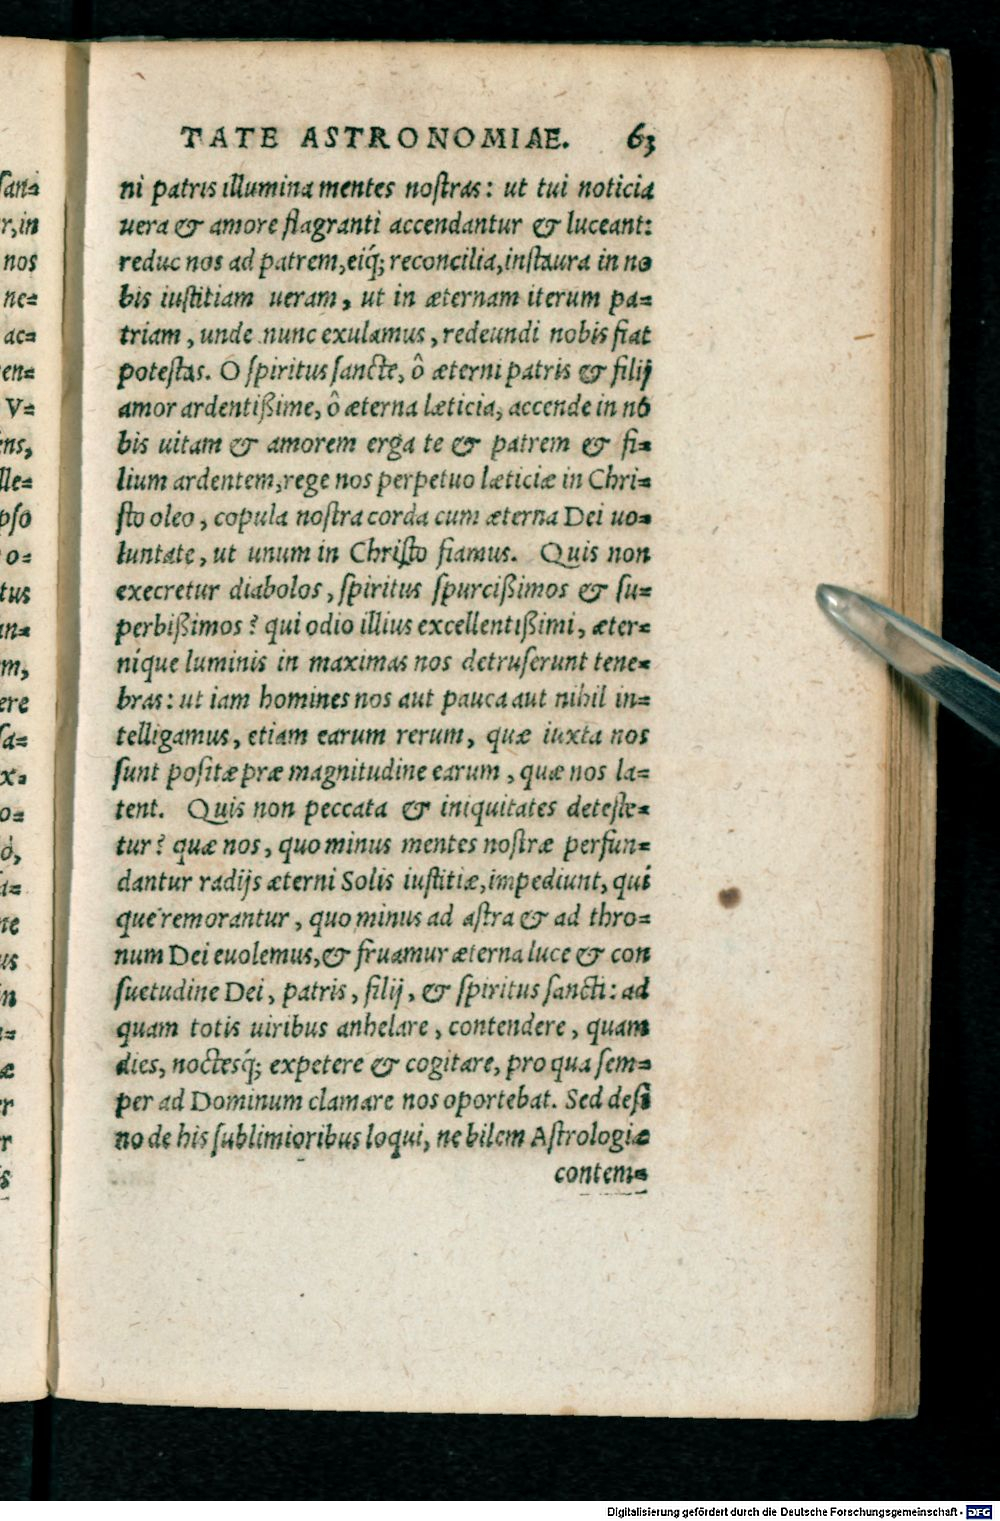 TATE ASTRONOMIAE. 63
ni patris illumina mentes nostras: ut tui noticia
uera & amore flagranti accendantur & luceant:
reduc nos ad patrem, eiq́; reconcilia, instaura in no
bis iustitiam ueram, ut in æternam iterum pa=
triam, unde nunc exulamus, redeundi nobis fiat
potestas. O spiritus sancte, ô æterni patris & filij
amor ardentißime, ô æterna læticia, accende in no
bis uitam & amorem erga te & patrem & fi=
lium ardentem, rege nos perpetuo læticiæ in Chri=
sto oleo, copula nostra corda cum æterna Dei uo=
luntate, ut unum in Christo fiamus. Quis non
execretur diabolos, spiritus spurcißimos & su=
perbißimos? qui odio illius excellentißimi, æter=
níque luminis in maximas nos detruserunt tene=
bras: ut iam homines nos aut pauca aut nihil in=
telligamus, etiam earum rerum, quæ iuxta nos
sunt positæ præ magnitudine earum, quæ nos la=
tent. Quis non peccata & iniquitates deteste=
tur? quæ nos, quo minus mentes nostræ perfun=
dantur radijs æterni Solis iustitiæ, impediunt, qui
que remorantur, quo minus ad astra & ad thro=
num Dei euolemus, & fruamur æterna luce & con
suetudine Dei, patris, filij, & spiritus sancti: ad
quam totis uiribus anhelare, contendere, quam
dies, noctesq́; expetere & cogitare, pro qua sem=
per ad Dominum clamare nos oportebat. Sed desi
no de his sublimioribus loqui, ne bilem Astrologiæ
contem=
san=
r, in
nos
ne=
ac=
en=
V=
ens,
lle=
pso
o=
tus
an=
m,
ere
sa=
x=
o=
ne
us
in
æ
er
r
Digitalisierung gefördert durch die Deutsche Forschungsgemeinschaft - DFG